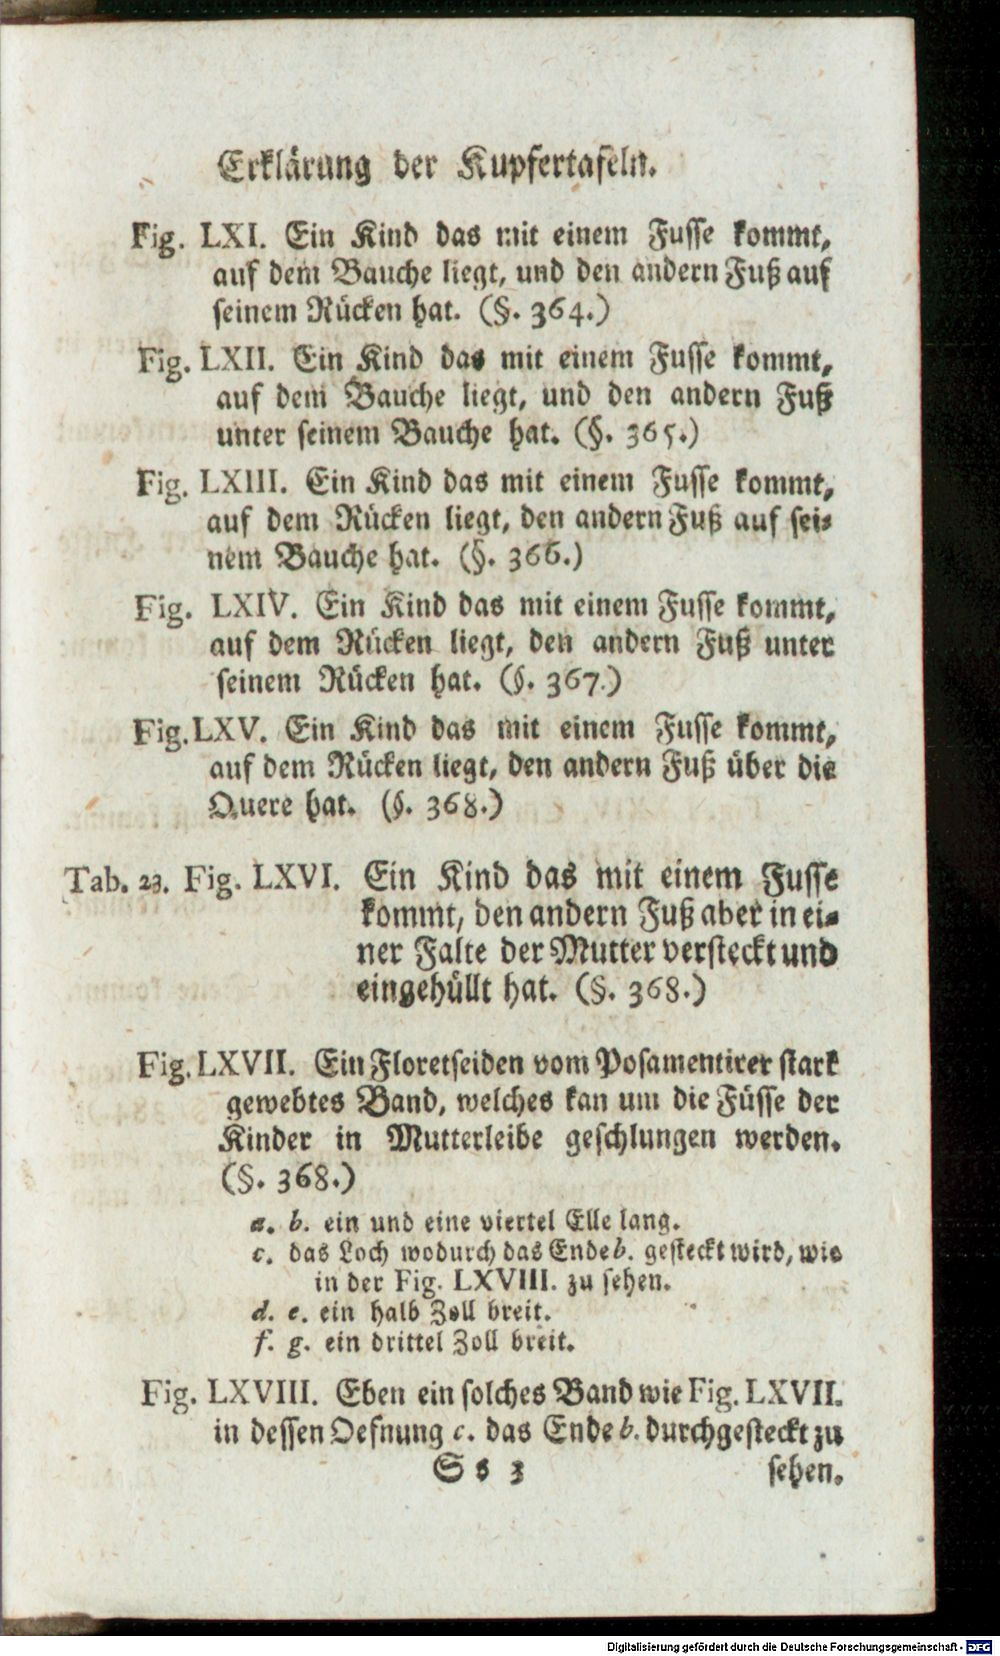 Erklärung der Kupfertafeln.
Fig. LXI. Ein Kind das mit einem Fusse kommt,
auf dem Bauche liegt, und den andern Fuß auf
seinem Rücken hat. (§. 364.)
Fig. LXII. Ein Kind das mit einem Fusse kommt,
auf dem Bauche liegt, und den andern Fuß
unter seinem Bauche hat. (§. 365.)
Fig. LXIII. Ein Kind das mit einem Fusse kommt,
auf dem Rücken liegt, den andern Fuß auf sei-
nem Bauche hat. (§. 366.)
Fig. LXIV. Ein Kind das mit einem Fusse kommt,
auf dem Rücken liegt, den andern Fuß unter
seinem Rücken hat. (§. 367.)
Fig. LXV. Ein Kind das mit einem Fusse kommt,
auf dem Rücken liegt, den andern Fuß über die
Quere hat. (§. 368.)
Tab. 23. Fig. LXVI. Ein Kind das mit einem Fusse
kommt, den andern Fuß aber in ei-
ner Falte der Mutter versteckt und
eingehüllt hat. (§. 368.)
Fig. LXVII. Ein Floretseiden vom Posamentirer stark
gewebtes Band, welches kan um die Füsse der
Kinder in Mutterleibe geschlungen werden.
(§. 368.)
a. b. ein und eine viertel Elle lang.
c. das Loch wodurch das Ende b. gesteckt wird, wie
in der Fig. LXVIII. zu sehen.
d. e. ein halb Zoll breit.
f. g. ein drittel Zoll breit.
Fig. LXVIII. Eben ein solches Band wie Fig. LXVII.
in dessen Oefnung c. das Ende b. durchgesteckt zu
S s 3 sehen.
Digitalisierung gefördert durch die Deutsche Forschungsgemeinschaft - DFG